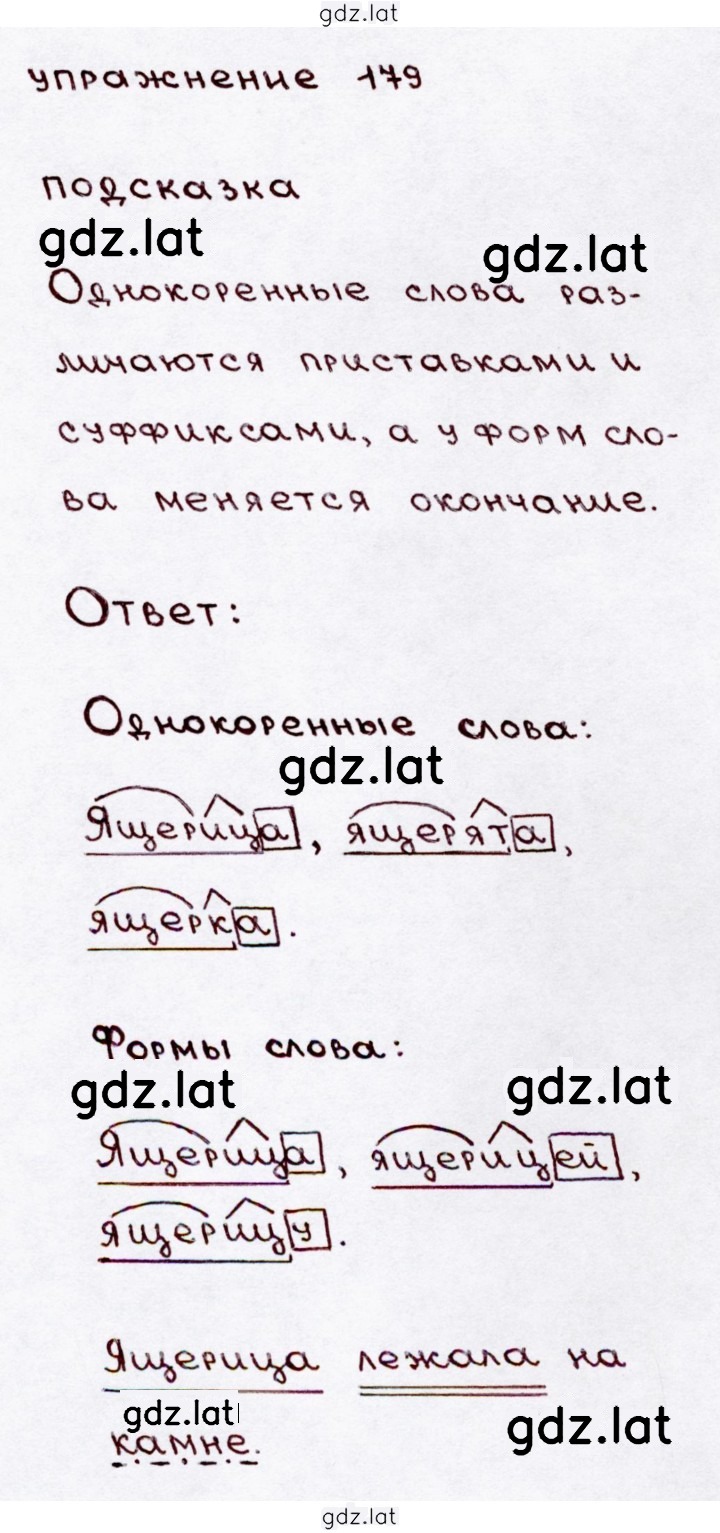 gdz.lat
упражнение 179
подсказка
gdz.lat
gdz.lat
Однокоренные слова раз-
личаются приставками и
суффиксами, а у форм сло-
ва меняется окончание.
Ответ:
Однокоренные слова:
gdz.lat
Ящерица, ящерята,
ящерка.
Формы слова:
gdz.lat
gdz.lat
Ящерица, ящерицей,
ящерицу.
Ящерица лежала на
gdz.lat
gdz.lat
камне.
gdz.lat